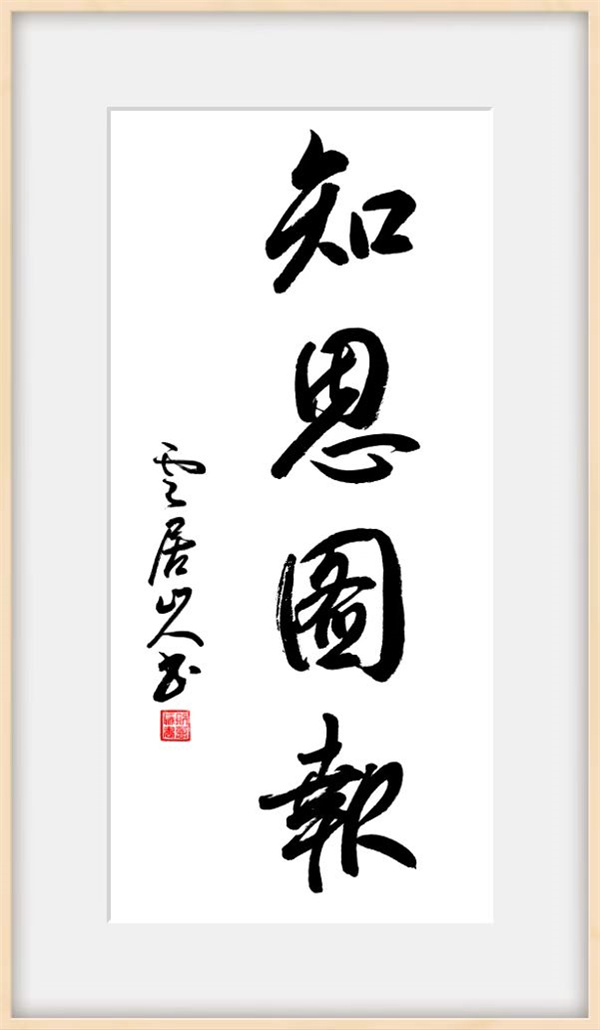 知恩圖報
雲居山人书